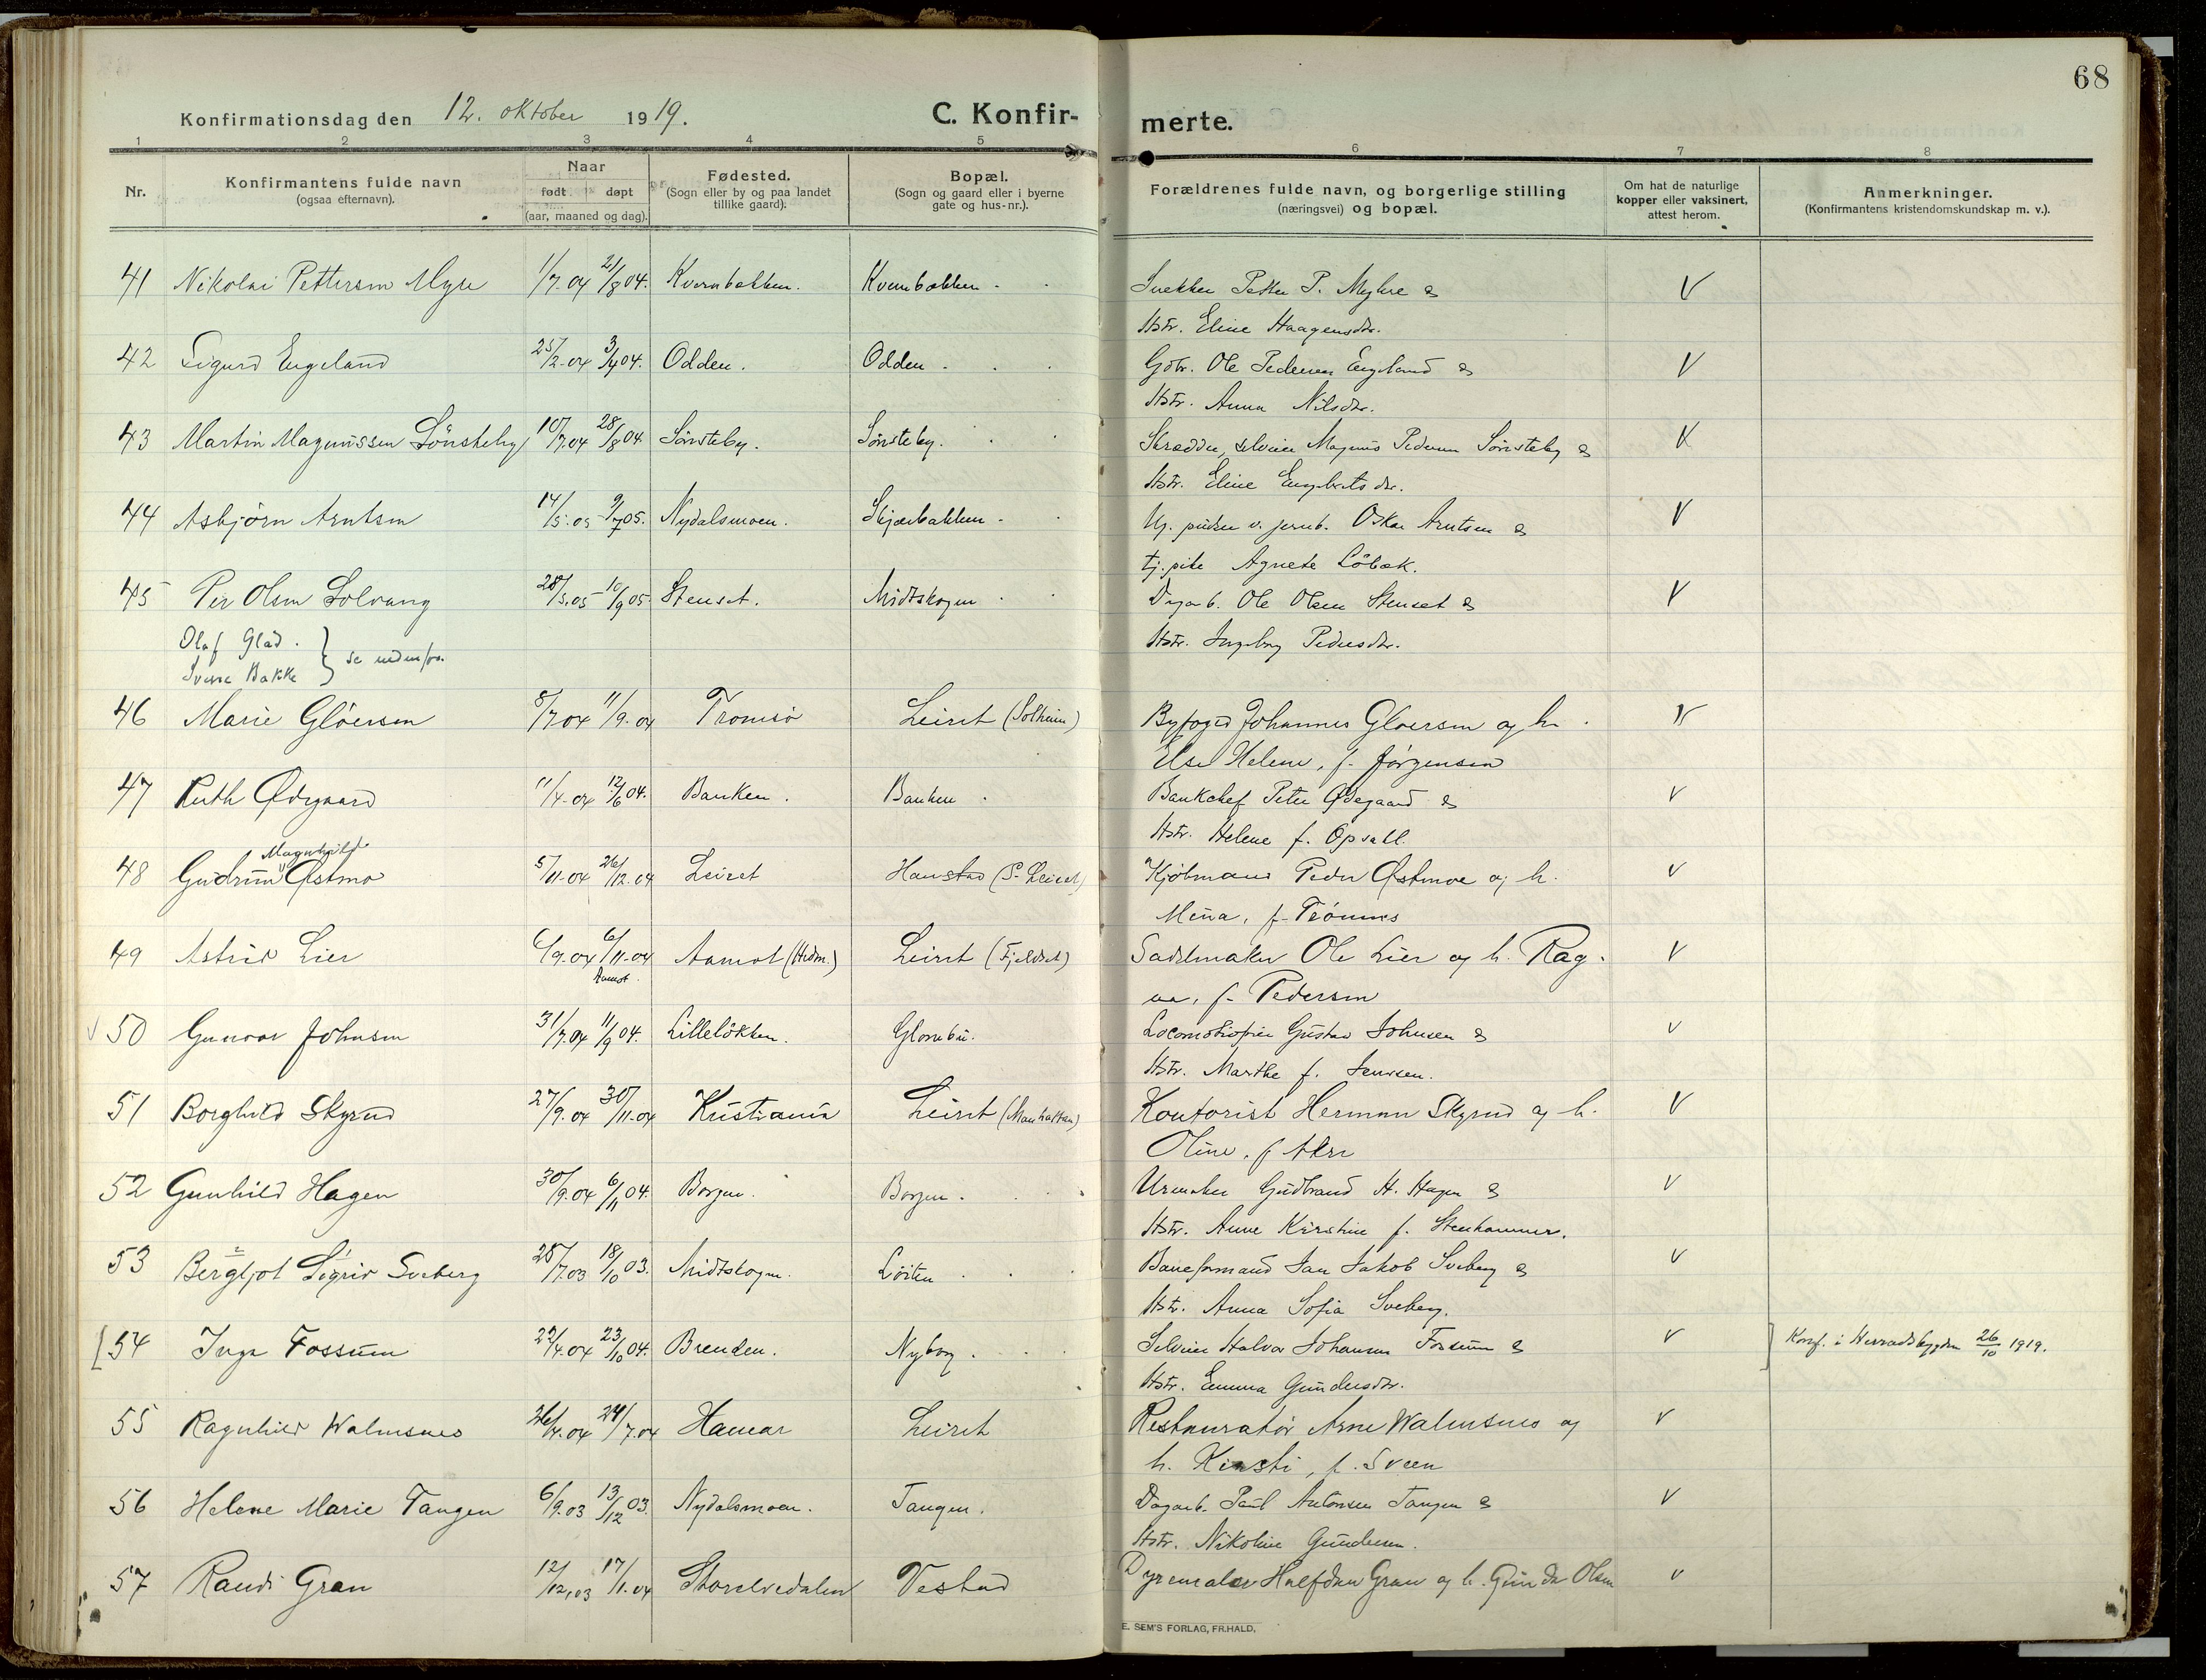 68
Konfirmationsdag den 12. oktober 1919.
C. Konfirmerte.
1 2 3 4 5 6 7 8
Nr.
Konfirmantens fulde navn
(ogsaa efternavn).
Naar
født døpt
(aar, maaned og dag).
Fødested.
(Sogn eller by og paa landet
tillike gaard).
Bopæl.
(Sogn og gaard eller i byerne
gate og hus-nr.).
Forældrenes fulde navn, og borgerlige stilling
(næringsvei) og bopæl.
Om hat de naturlige
kopper eller vaksinert,
attest herom.
Anmerkninger.
(Konfirmantens kristendomskundskap m. v.).
41 Nikolai Pettersen Myre 1/7.04 21/8 04. Kvernbakken. Kvernbakken. Snekker Petter P. Myhre & V
Hstr. Eline Haagensdtr.
42 Sigurd Engeland 25/2-04 3/4 04. Odden. Odden. Gdbr. Ole Pedersen Engeland & V
Hstr. Anna Nilsdtr.
43 Martin Magnussen Sönsteby 10/7.04 28/8 04 Sönsteby. Sönsteby. Skrædder, selveier Magnus Pedersen Sönsteby & V
Hstr. Eline Engebretsdtr.
44 Asbjörn Arntsen 14/5.05 9/7 05. Nydalsmoen. Skjærbakken. Oskar Arntsen & V
tj.pike Agnete Löbak.
45 Per Olsen Solvang 28/5.05 10/9 05. Stenset. Midtskogen. Dagarb. Ole Olsen Stenset & V
Hstr. Ingeborg Pedersdtr.
Olaf Glad.
Sverre Bakke } se nedenfor.
46 Marie Glöersen 8/7 04 11/9-04 Tromsö Leiret (Solheim) Byfoged Johannes Gloersen og h. V
Else Helene, f. Jörgensen
47 Ruth Ødegaard 11/4-04 12/6 04. Banken. Banken. Bankchef Peter Ødegaard & V
Hstr. Helene f. Opsahl.
48 Gudrun Magnhild Østmo 5/11-04 26/12-04 Leiret Hanstad (P. Leiret) Kjöbmand Peder Østmoe og h. V
Mina, f. Trönnes
49 Astrid Lier 6/9-04 6/11-04 Aamot (Hedm.) Leiret (Fjeldset) Sadelmaker Ole Lier og h. Rag- V
Aamot
na, f. Pedersen
V 50 Gunvor Johnsen 31/7.04 11/9 04. Lilleløkken. Glombu. Locomotivfører Gustav Johnsen & V
Hstr. Marthe f. Jensen.
51 Borghild Skyrud 27/9.04 30/11-04 Kristiania Leiret (Manhattan) Kontorist Herman Skyrud og h. V
Oline, f Aker
52 Gunhild Hagen 30/9.04 6/11 04. Borgen. Borgen. Urmaker Gudbrand H. Hagen & V
Hstr. Anne Kirstine f. Stenhammer.
53 Bergljot Sigrid Sveberg 25/7.03 18/10 03. Midtskogen. Löiten Baneformand Jan Jakob Sveberg & V
Hstr. Anna Sofia Sveberg.
[54 Inga Fossum 22/4.04 23/10 04. Brenden. Nyborg. Selveier Halvor Johansen Fossum & V ] Konf. i Herradsbygden 26/10 1919.
Hstr. Emma Gundersdtr.
55 Ragnhild Walmsnes 26/4.04 24/7.04 Hamar Leiret Restauratör Arne Walmsnes og V
h. Kirsti, f. Sveen
56 Helene Marie Tangen 6/9.03 13/12 03. Nydalsmoen. Tangen. Dagarb. Paul Antonsen Tangen & V
Hstr. Nikoline Gundersen.
57 Randi Gran 12/12.03 17/1.04 Storelvedalen Vestad Dyremaler Halfdan Gran og h. Gunda Olsen V
E. SEM'S FORLAG, FR.HALD.